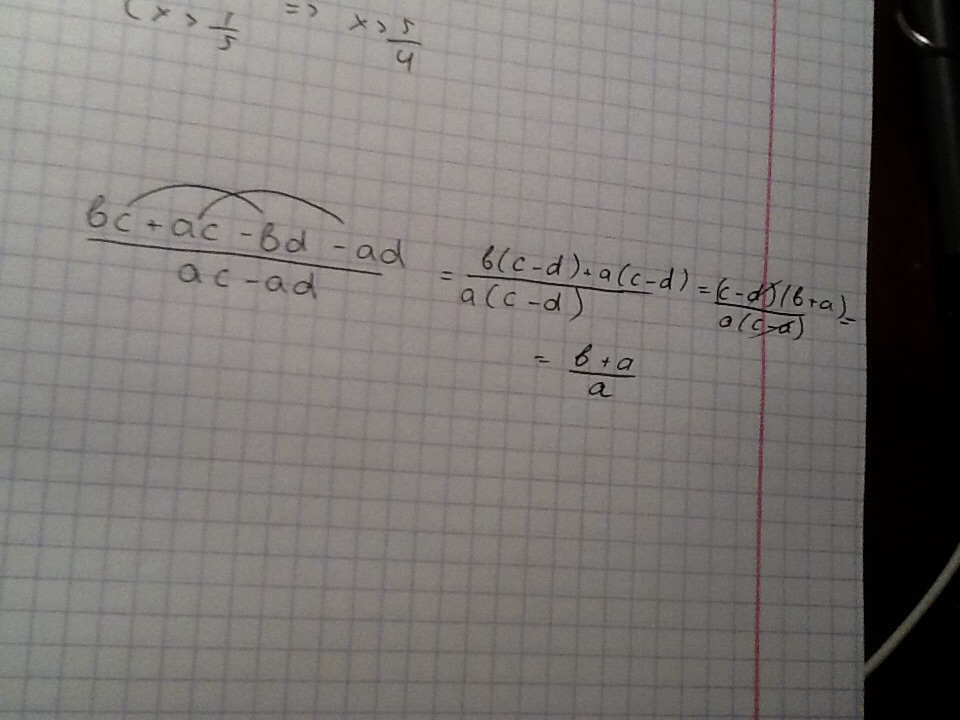 ( x > 1/5 => x > 5/4
(bc + ac - bd - ad)/(ac - ad) = (b(c - d) + a(c - d))/(a(c - d)) = ((c - d)(b + a))/(a(c - d)) =
= (b + a)/a